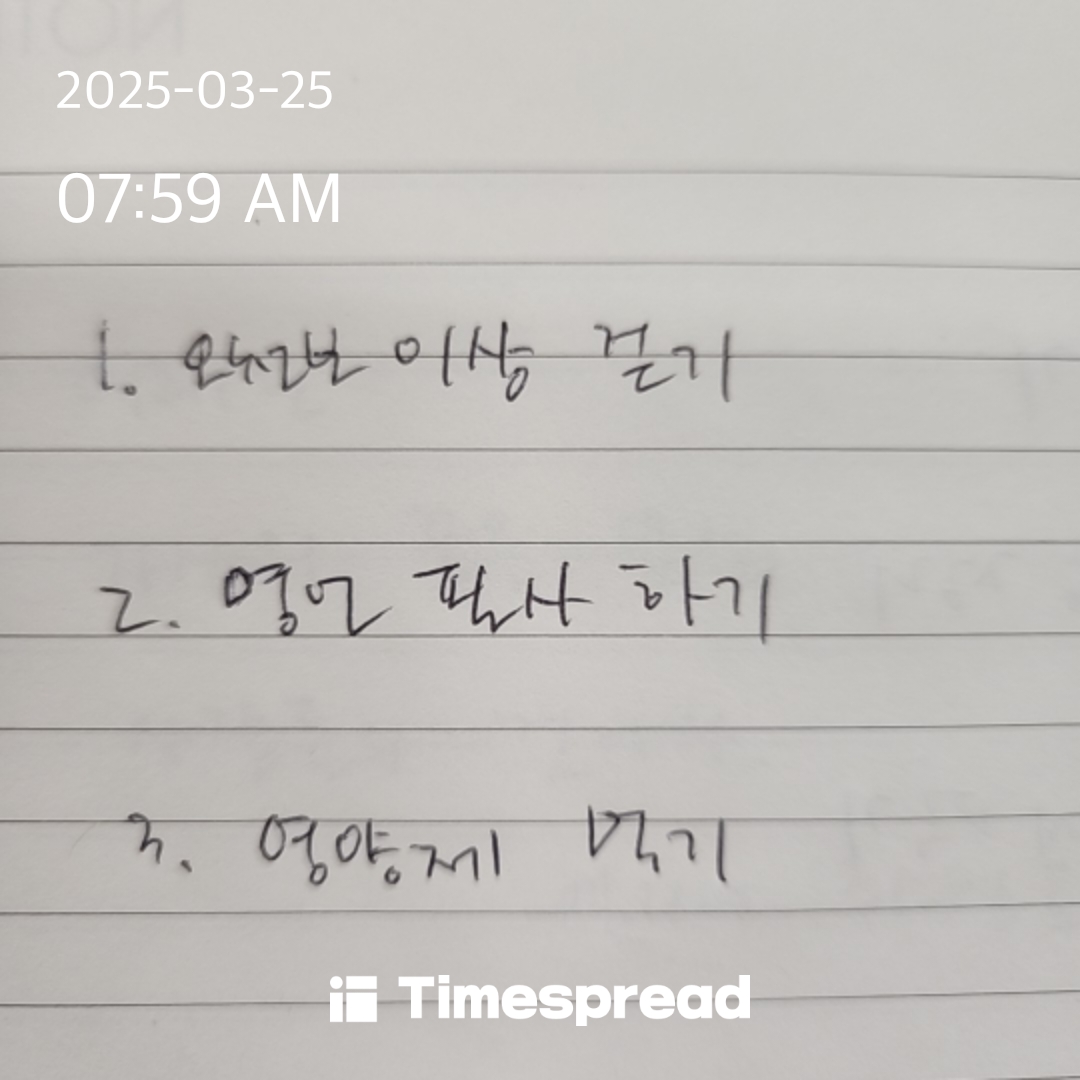 2025-03-25
07:59 AM
1. 오천보 이상 걷기
2. 영어 필사 하기
3. 영양제 먹기
Timespread